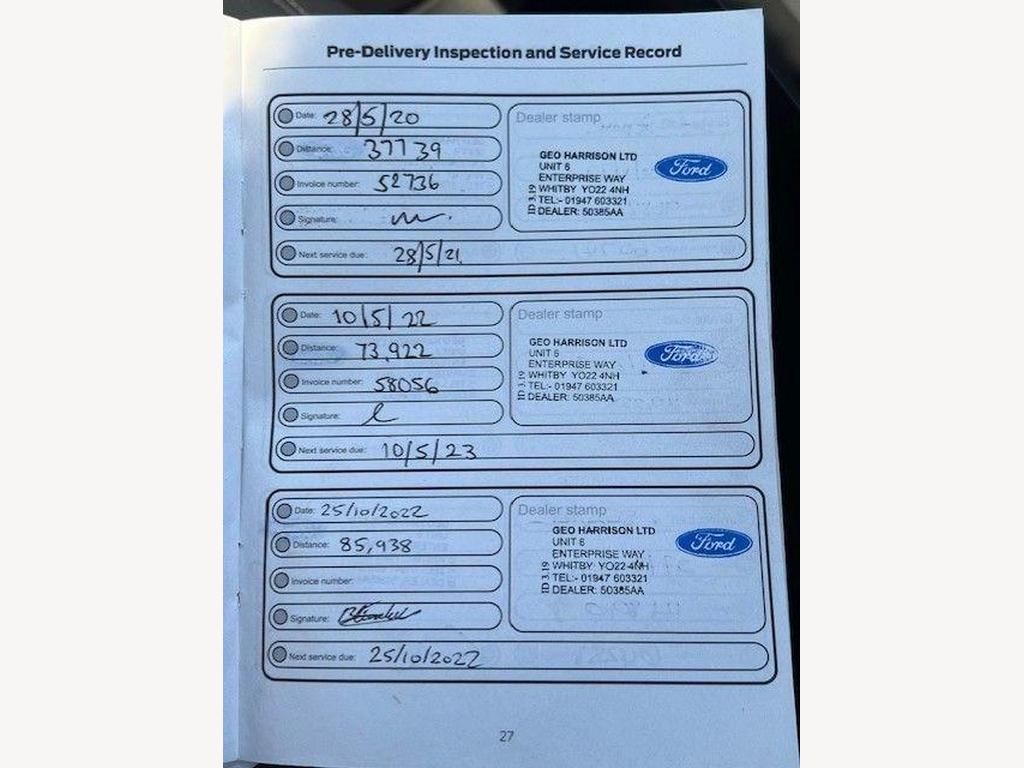 Pre-Delivery Inspection and Service Record
Date: 28/5/20
Distance: 37739
Invoice number: 52736
Signature:
Next service due: 28/5/21
Dealer stamp
GEO HARRISON LTD
UNIT 6
ENTERPRISE WAY
WHITBY YO22 4NH
TEL:- 01947 603321
DEALER: 50385AA
ID 3.19
Ford
Date: 10/5/22
Distance: 73,922
Invoice number: 58056
Signature:
Next service due: 10/5/23
Dealer stamp
GEO HARRISON LTD
UNIT 6
ENTERPRISE WAY
WHITBY YO22 4NH
TEL:- 01947 603321
DEALER: 50385AA
ID 3.19
Ford
Date: 25/10/2022
Distance: 85,938
Invoice number:
Signature:
Next service due: 25/10/2022
Dealer stamp
GEO HARRISON LTD
UNIT 6
ENTERPRISE WAY
WHITBY YO22 4NH
TEL:- 01947 603321
DEALER: 50385AA
ID 3.19
Ford
27